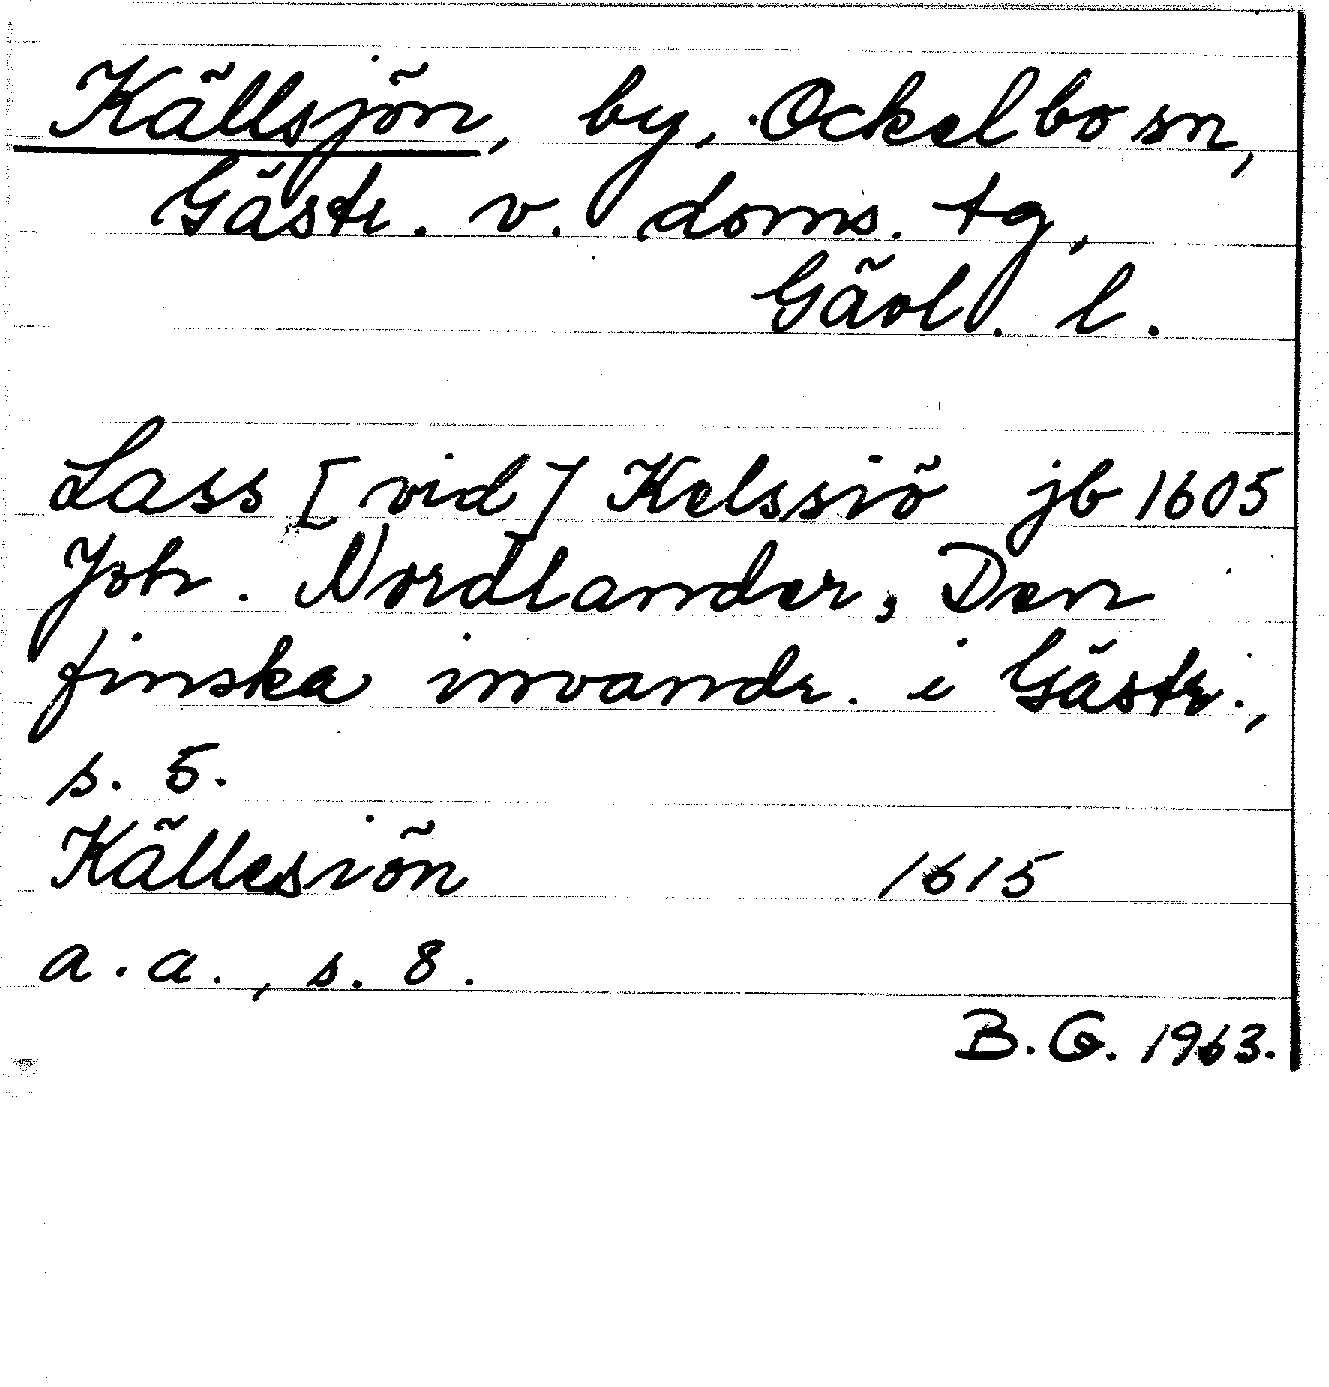 Källsjön, by, Ockelbo sn,
Gästr. v. doms. tg,
Gävl. l.
Lass [vid] Kelssiö jb 1605
Joh. Nordlander, Den
finska invandr. i Gästr.,
s. 5.
Källesiön 1615
a. a., s. 8.
B.G. 1963.